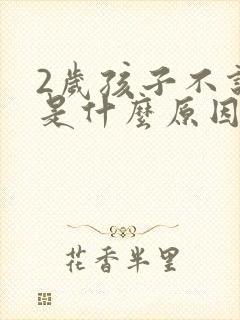 2歲孩子不
是什麼原因
花香半里